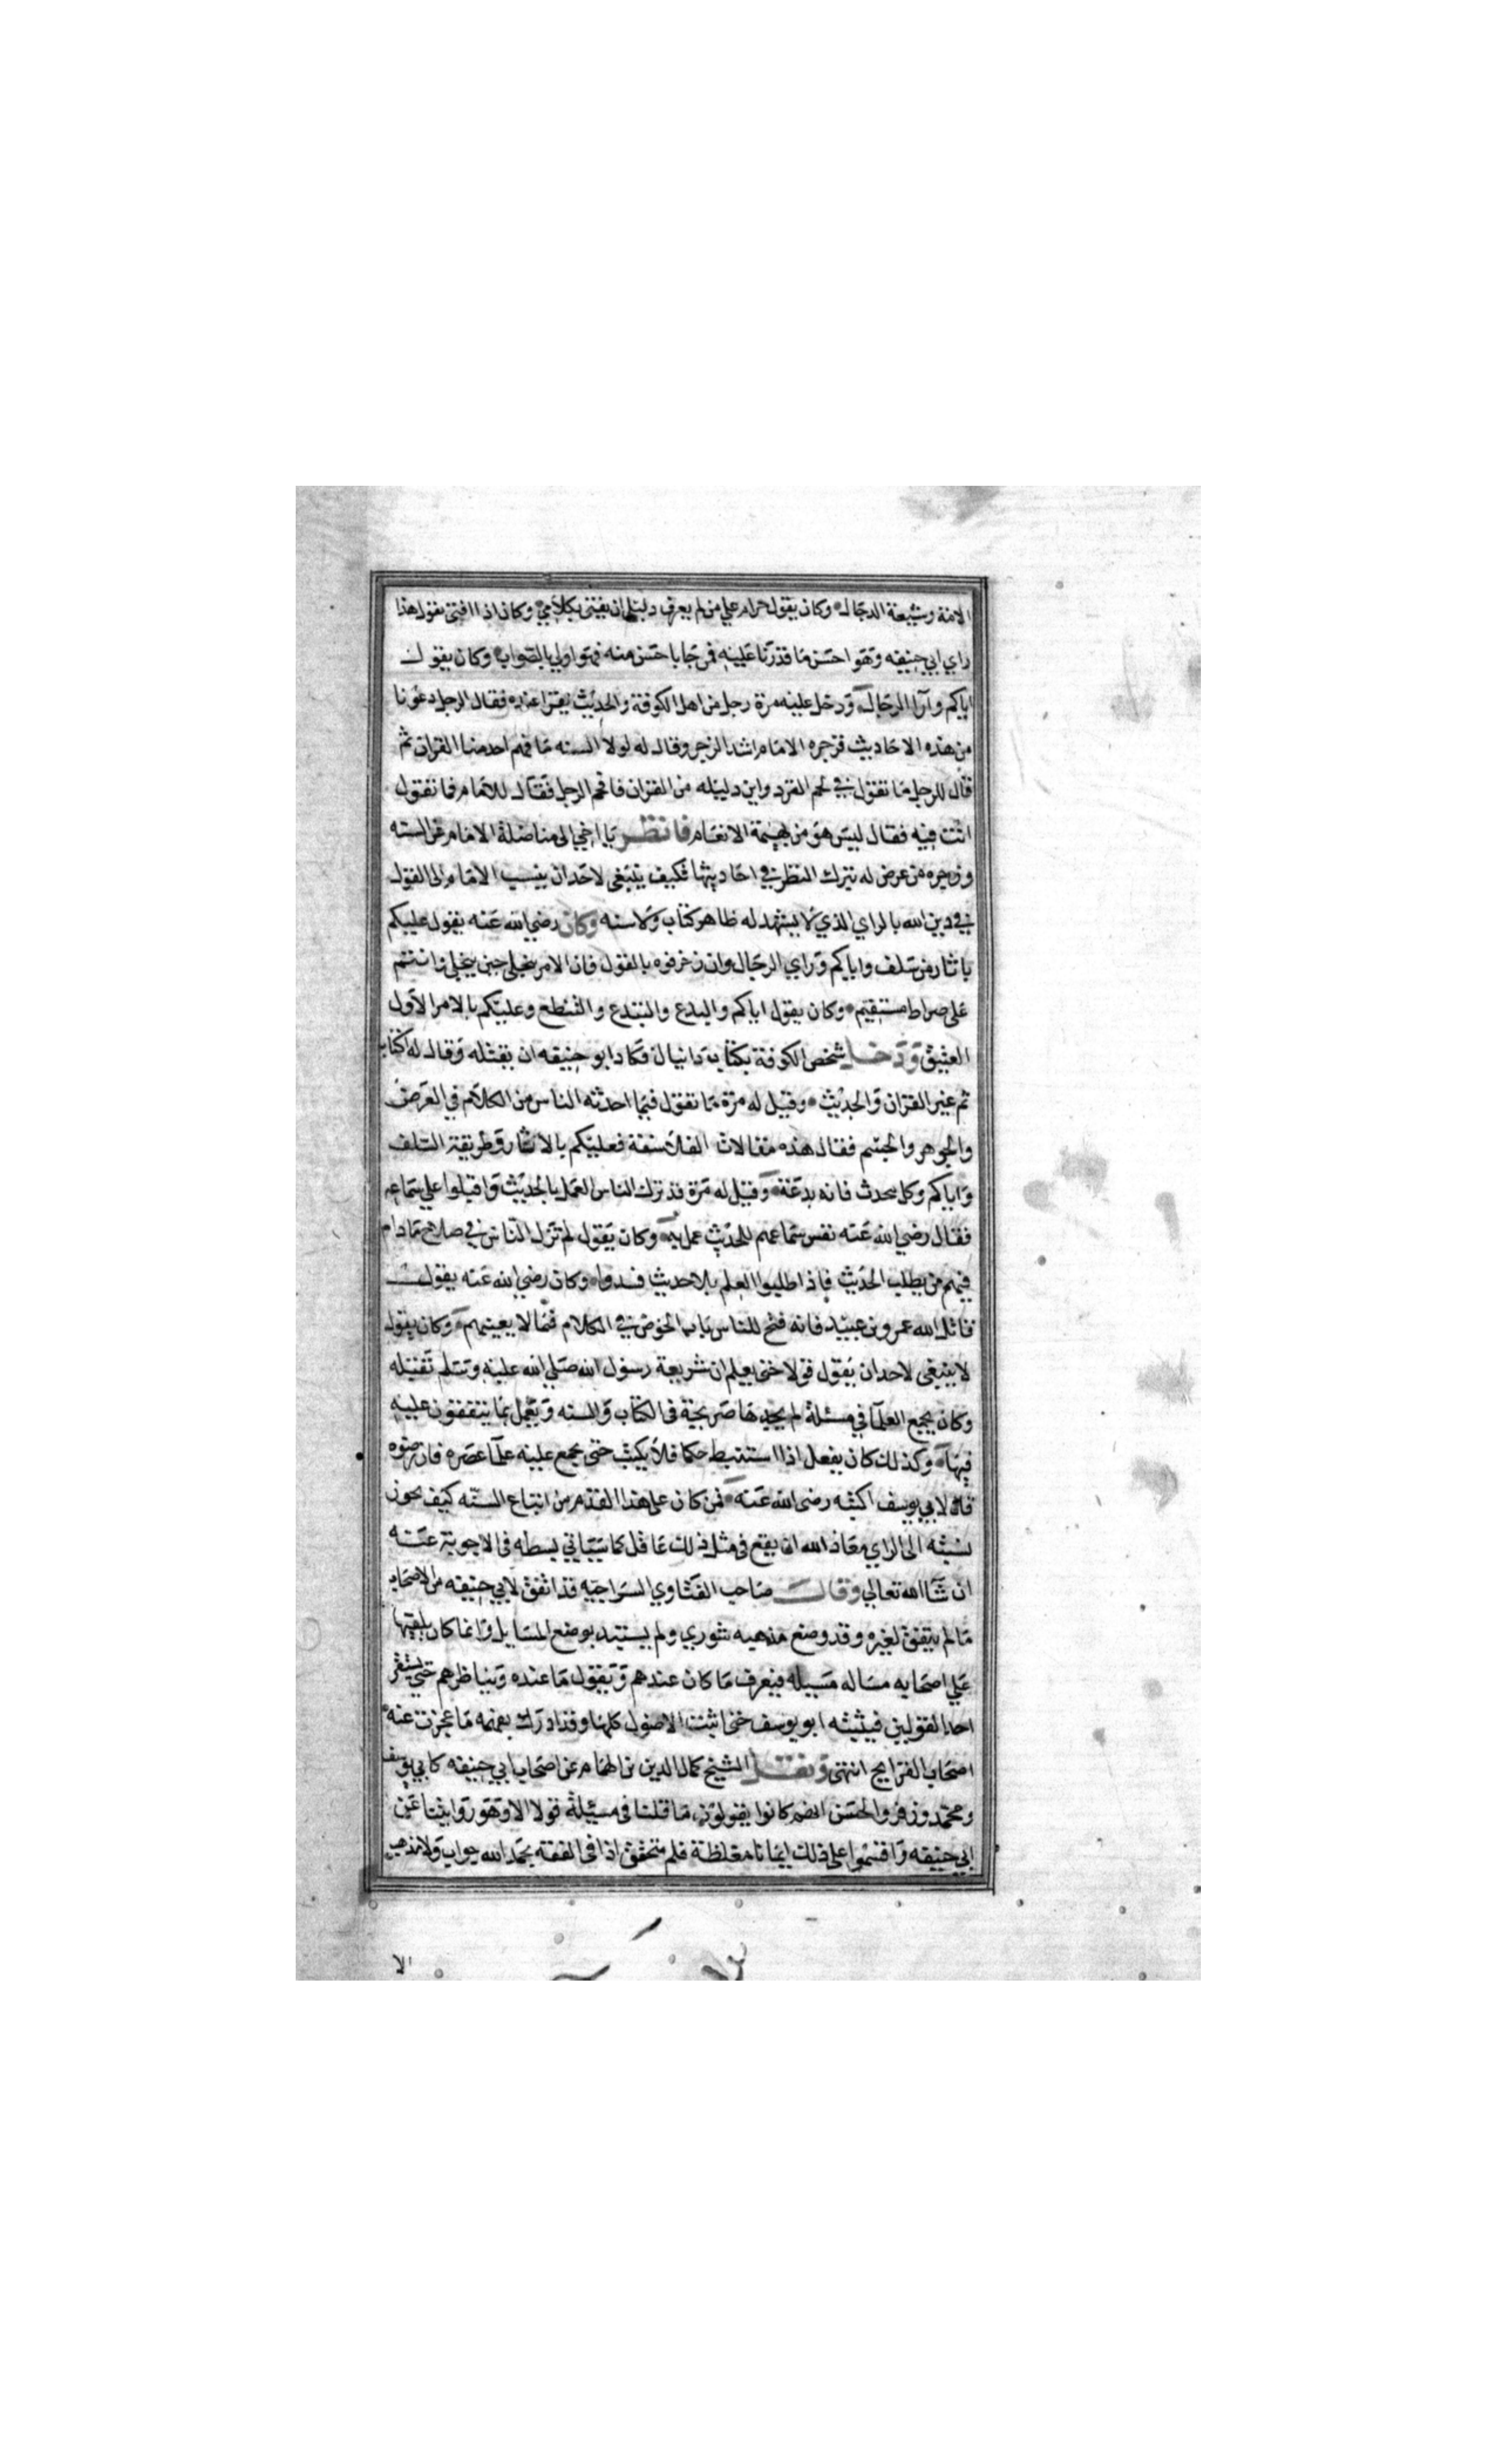 الامة وشيعة الدجال وكان يقول حرام علي من لم يعرف دليلي ان يفتي بكلامي وكان اذا افتي يقول هذا
راي ابي حنيفه وهو احسن ما قدرنا عليه فمن جا باحسن منه فهو اولي بالصواب وكان يقول
اياكم وآرا الرجال ودخل عليه مرة رجل من اهل الكوفة والحديث يقرا عنده فقال الرجل دعونا
من هذه الاحاديث فزجره الامام اشد الزجر وقال له لولا السنه ما فهم احد منا القران ثم
قال للرجل ما تقول في لحم القرد واين دليله من القران فافحم الرجل فقال للامام فما تقول
انت فيه فقال ليس هو من بهيمة الانعام فانظر يا اخي الى مناضلة الامام عن السنه
وزجره من عرض له بترك النظر في احاديثها فكيف ينبغي لاحد ان ينسب الامام الى القول
في دين الله بالراي الذي لا يشهد له ظاهر كتاب ولا سنه وكان رضي الله عنه يقول عليكم
باثار من سلف واياكم وراي الرجال وان زخرفوه بالقول فان الامر ينجلي حين ينجلي وانتم
على صراط مستقيم وكان يقول اياكم والبدع والتبدع والتنطع وعليكم بالامر الاول
العتيق ودخل شخص الكوفة بكتاب دانيال فكاد ابو حنيفه ان يقتله وقال له اكتاب
ثم غير القران والحديث وقيل له مرة ما تقول فيما احدثه الناس من الكلام في العرض
والجوهر والجسم فقال هذه مقالات الفلاسفة فعليكم بالاثار وطريقة السلف
واياكم وكل محدث فانه بدعة وقيل له مرة قد ترك الناس العمل بالحديث واقبلوا علي سماعه
فقال رضي الله عنه نفس سماعهم للحديث عمل به وكان يقول لم تزل الناس في صلاح مادام
فيهم من يطلب الحديث فاذا طلبوا العلم بلا حديث فسدوا وكان رضي الله عنه يقول
قاتل الله عمرو بن عبيد فانه فتح للناس باب الخوض في الكلام فيما لا يعينهم وكان يقول
لا ينبغي لاحد ان يقول قولا حتى يعلم ان شريعة رسول الله صلي الله عليه وسلم تقبله
وكان يجمع العلما في مسئلة لم يجدها صريحة في الكتاب والسنه ويعمل بما يتفقون عليه
فيها وكذلك كان يفعل اذا استنبط حكما فلا يكتبه حتى يجمع عليه علما عصره فان رضوه
قال لابي يوسف اكتبه رضى الله عنه فمن كان على هذا القدم من اتباع السنه كيف يجوز
نسبته الى الراي معاذ الله ان يقع في مثل ذلك عاقل كما سياتي بسطه في الاجوبة عنه
ان شا الله تعالي وقال صاحب الفتاوي السراجيه قد اتفق لابي حنيفه من الاصحاب
ما لم يتفق لغيره وقد وضع مذهبه شوري ولم يستبد بوضع المسايل وانما كان يلقيها
علي اصحابه مساله مسيله فيعرف ما كان عندهم ويقول ما عنده ويناظرهم حتي يستقر
احد القولين فيثبته ابو يوسف حتى اثبت الاصول كلها وقد ادرك بفهمه ما عجزت عنه
اصحاب القرايح انتهى ونقل الشيخ كمال الدين بن الهمام عن اصحاب ابي حنيفه كابي يوسف
ومحمد وزفر والحسن انهم كانوا يقولون ما قلنا في مسيلة قولا الا وهو روايتنا عن
ابي حنيفه واقسموا على ذلك ايمانا مغلظة فلم يتحقق اذا في الفقه بحمد الله جواب ولا مذهب
الا